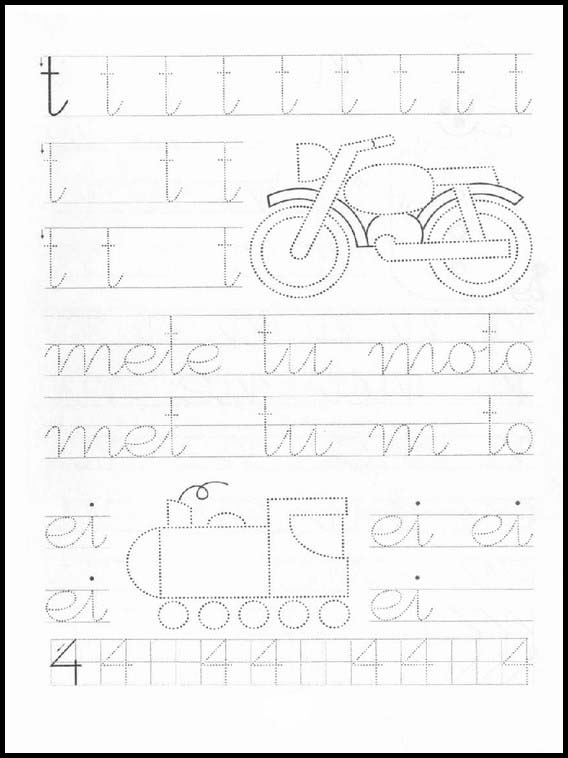 t t t t t t t t t
t t t
t t t
mete tu moto
met tu m to
ei ei ei
ei ei
4 4 4 4 4 4 4